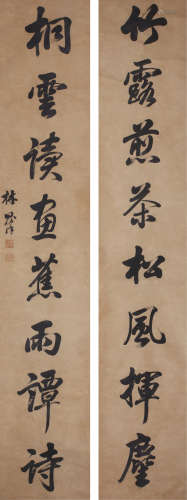 竹露煎茶松風揮麈
桐雲讀畫蕉雨譚詩
林則徐